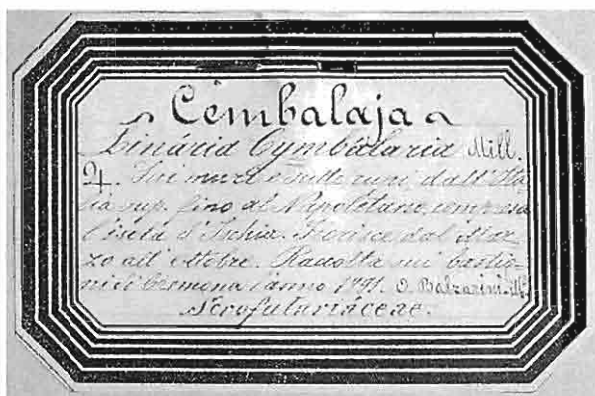 Cembalaja
Linária Cymbalaria Mill.
♃. Sui muri e sulle rupi, dall'Ita
lia sup. fino al Napoletano, compresa
l'isola d'Ischia. Fiorisce dal Mar
zo all'ottobre. Raccolta sui bastio
ni di Cremona l'anno 1891. O. Balzarini
Scrofulariáceae.